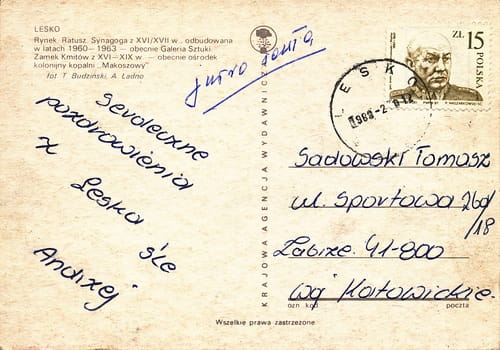 LESKO
Rynek. Ratusz. Synagoga z XVI/XVII w., odbudowana
w latach 1960—1963 — obecnie Galeria Sztuki.
Zamek Kmitów z XVI—XIX w. — obecnie ośrodek
kolonijny kopalni „Makoszowy”
fot. T. Budziński, A. Ładno
Serdeczne
pozdrowienia
z Leska śle
Andrzej
KRAJOWA AGENCJA WYDAWNICZA
ZŁ 15
POLSKA
LESKO
Sadowski Tomasz
ul. Sportowa 26d/18
Zabrze. 41-800
woj Katowickie.
ozn kod
poczta
Wszelkie prawa zastrzeżone.